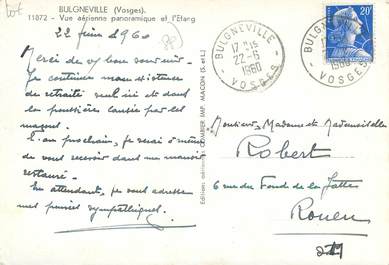 BULGNEVILLE (Vosges).
11872 - Vue aérienne panoramique et l'Etang
22 juin 1960
Merci de vo bon souvenir.
Je continue mon existence
de retraité seul ici et dans
la poussière causée par cet
masort.
L'an prochain, je serai à même
de vous recevoir dans un manoir
restauré.
En attendant, je vous adresse
mes pensées sympathiques.
Editions aériennes COMBIER IMP. MACON (S.-et-L.)
BULGNEVILLE
17H15
22-6
1960
VOSGES
BULGNEVILLE
22-6
1960
VOSGES
20F
Monsieur, Madame et Mademoiselle
Robert
6 rue du Fond de la Jatte
Rouen